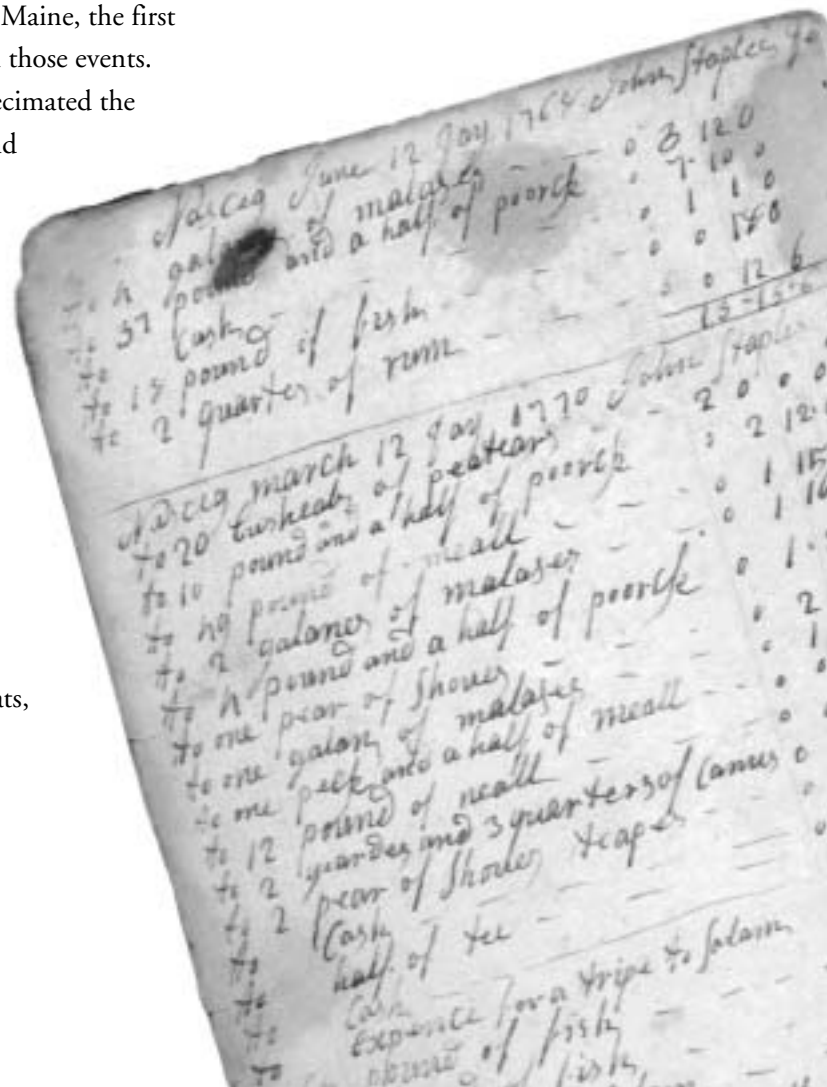 Maine, the first
those events.
ecimated the
ats,
Narceg June 12 Day 1764 John Staples
to 4 of malases - - 0 3 12 0
to 37 pound and a half of poorck 0 7 10 0
to Cash - - - 0 1 1 0
to 18 pound of fish - - - 0 0 18 0
to 2 quartes of rum - - - 0 0 12 6
13-13-6
Narceg march 12 Day 1770 John Staples
to 20 busheals of peatears - - 2 0 0 0
to 10 pound and a half of poorck 0 2 12
to 49 pound of meall - - 0 1 15
to 2 galanes of malases - - 0 1 10
to 4 pound and a half of poorck 0 1
to one pear of Shoues - - 0 2
to one galan of malases - - 0 1
to one peck and a half of meall - - 0
to 12 pound of meall - - 0
to 2 yardes and 3 quarters of Canves 0
to 2 pear of Shoues teapes - - 0
to Cash - - - 0
to half of tee - - -
to Cash
to Expence for a tripe to Salam
to pound of fish - - -
of fish